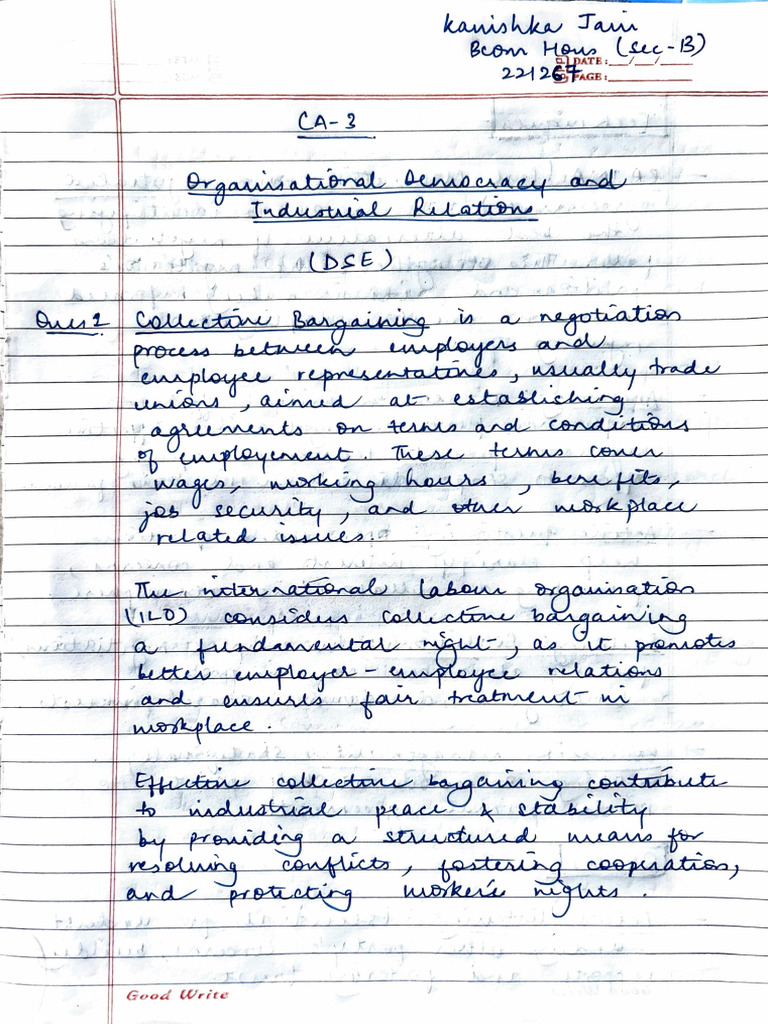 Kanishka Jain
Bcom Hons (Sec-B)
DATE:__/__/__
221267
PAGE:
CA-3
Organisational Democracy and
Industrial Relations
(DSE)
Ques 1 Collective Bargaining is a negotiation
process between employers and
employee representatives, usually trade
unions, aimed at establishing
agreements on terms and conditions
of employement. These terms cover
wages, working hours, benefits,
job security, and other workplace
related issues.
The international labour organisation
(ILO) considers collective bargaining
a fundamental right, as it promotes
better employer-employee relations
and ensures fair treatment in
workplace.
Effective collective bargaining contribute
to industrial peace & stability
by providing a structured means for
resolving conflicts, fostering cooperation,
and protecting worker's rights.
Good Write